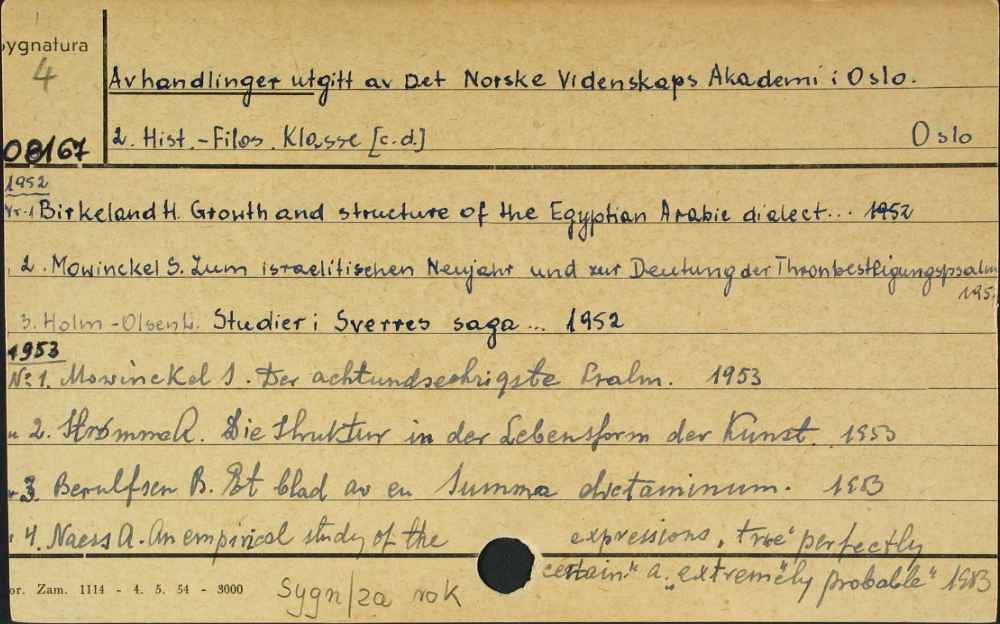 ygnatura
4
Avhandlinger utgitt av Det Norske Videnskaps Akademi i Oslo.
08167
2. Hist.-Filos. Klasse [c.d.] Oslo
1952
Nr.1 Birkeland H. Growth and structure of the Egyptian Arabic dialect... 1952
2. Mowinckel S. Zum israelitischen Neujahr und zur Deutung der Thronbesteigungspsalm
195
3. Holm-Olsen L. Studier i Sverres saga ... 1952
1953
No 1. Mowinckel S. Der achtundsechzigste Psalm. 1953
" 2. Strømme A. Die Struktur in der Lebensform der Kunst. 1953
" 3. Berulfsen B. Et blad av en Summa dictaminum. 1953
" 4. Naess A. An empirical study of the expressions „true" perfectly
certain" a. „extremely probable" 1953
or. Zam. 1114 - 4. 5. 54 - 3000
Sygn/za rok